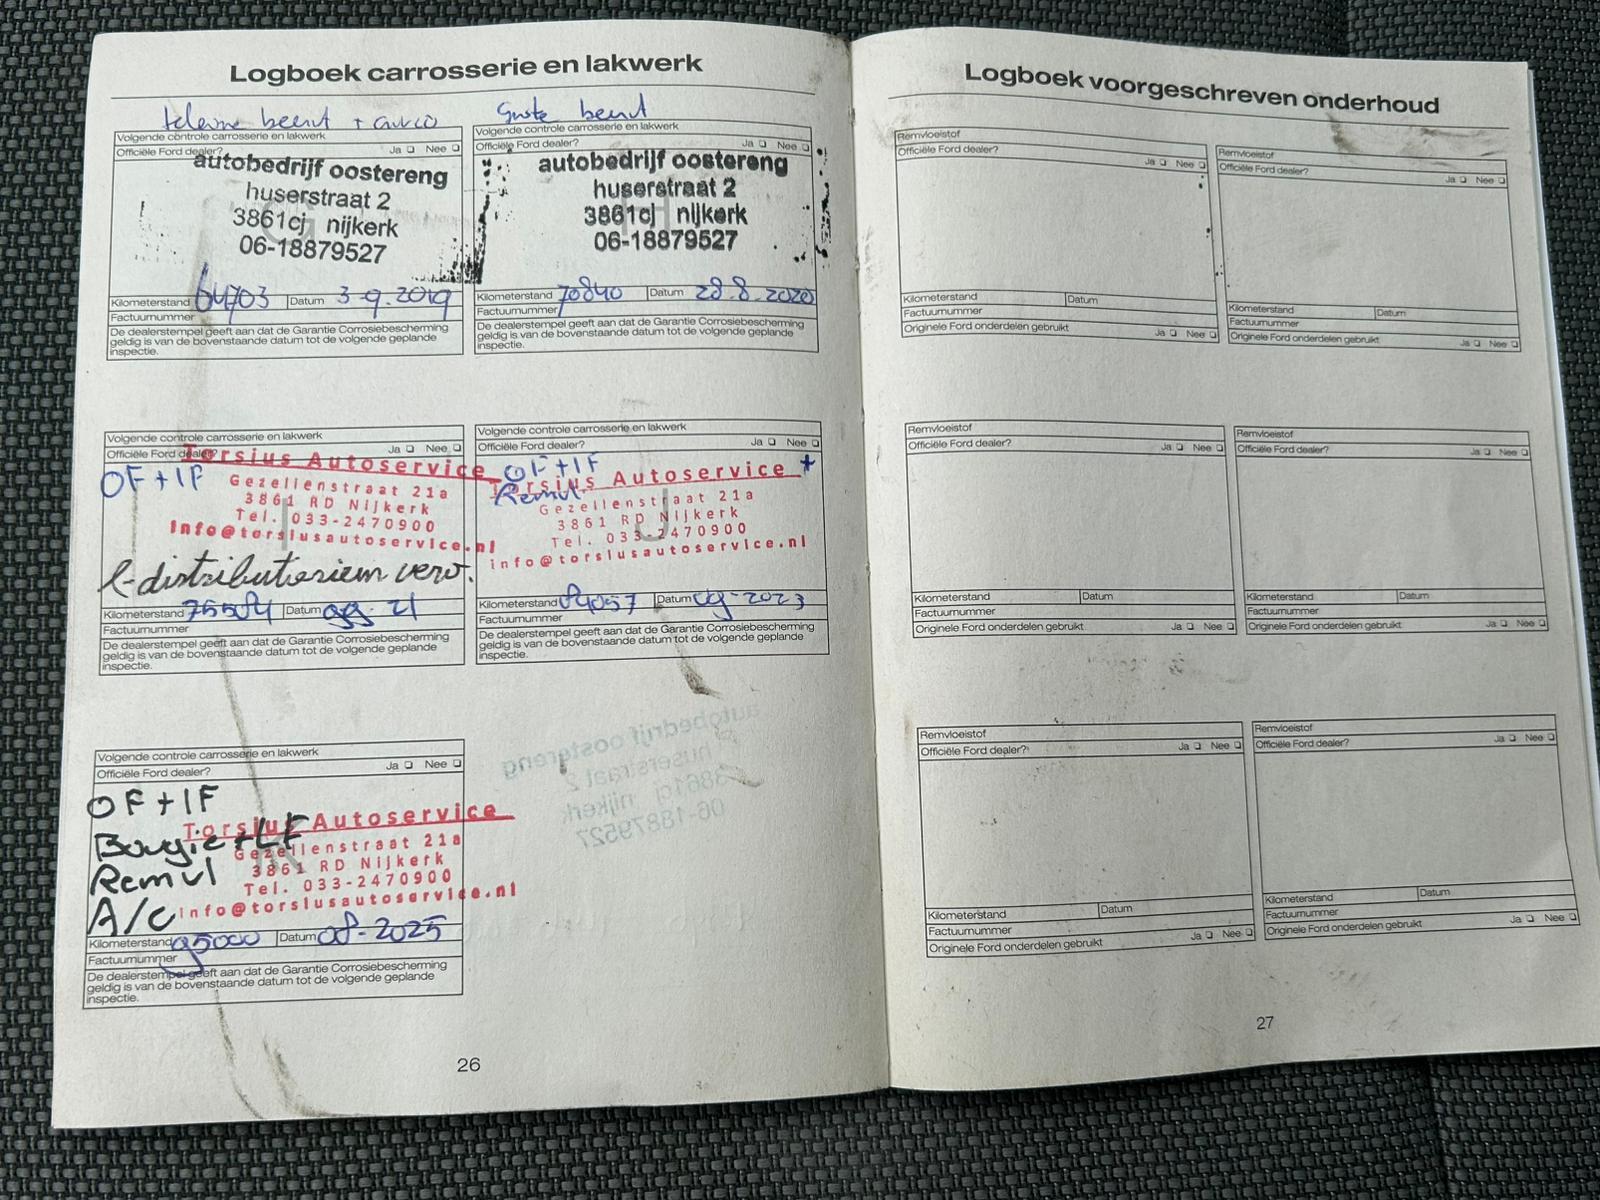 Logboek carrosserie en lakwerk
kleine beurt + airco
Volgende controle carrosserie en lakwerk
Officiële Ford dealer? Ja Nee
autobedrijf oostereng
huserstraat 2
3861cj nijkerk
06-18879527
Kilometerstand 64703 Datum 3-9-2019
Factuurnummer
De dealerstempel geeft aan dat de Garantie Corrosiebescherming
geldig is van de bovenstaande datum tot de volgende geplande
inspectie.
Grote beurt
Volgende controle carrosserie en lakwerk
Officiële Ford dealer? Ja Nee
H
autobedrijf oostereng
huserstraat 2
3861cj nijkerk
06-18879527
Kilometerstand 70840 Datum 28.8.2020
Factuurnummer
De dealerstempel geeft aan dat de Garantie Corrosiebescherming
geldig is van de bovenstaande datum tot de volgende geplande
inspectie.
Volgende controle carrosserie en lakwerk
Officiële Ford dealer? Ja Nee
I
Torsius Autoservice
OF + IF
Gezellenstraat 21a
3861 RD Nijkerk
Tel. 033-2470900
info@torsiusautoservice.nl
distributieriem verv.
Kilometerstand Datum
Factuurnummer
De dealerstempel geeft aan dat de Garantie Corrosiebescherming
geldig is van de bovenstaande datum tot de volgende geplande
inspectie.
Volgende controle carrosserie en lakwerk
Officiële Ford dealer? Ja Nee
J
OF + IF +
Remvl
Torsius Autoservice
Gezellenstraat 21a
3861 RD Nijkerk
Tel. 033-2470900
info@torsiusautoservice.nl
Kilometerstand 84057 Datum 09-2023
Factuurnummer
De dealerstempel geeft aan dat de Garantie Corrosiebescherming
geldig is van de bovenstaande datum tot de volgende geplande
inspectie.
Volgende controle carrosserie en lakwerk
Officiële Ford dealer? Ja Nee
K
OF + IF
Bougie + LF
Remvl
A/C
Torsius Autoservice
Gezellenstraat 21a
3861 RD Nijkerk
Tel. 033-2470900
info@torsiusautoservice.nl
Kilometerstand 95000 Datum 08-2025
Factuurnummer
De dealerstempel geeft aan dat de Garantie Corrosiebescherming
geldig is van de bovenstaande datum tot de volgende geplande
inspectie.
autobedrijf oostereng
huserstraat 2
3861cj nijkerk
06-18879527
26
Logboek voorgeschreven onderhoud
Remvloeistof
Officiële Ford dealer? Ja Nee
Kilometerstand Datum
Factuurnummer
Originele Ford onderdelen gebruikt Ja Nee
Remvloeistof
Officiële Ford dealer? Ja Nee
Kilometerstand Datum
Factuurnummer
Originele Ford onderdelen gebruikt Ja Nee
Remvloeistof
Officiële Ford dealer? Ja Nee
Kilometerstand Datum
Factuurnummer
Originele Ford onderdelen gebruikt Ja Nee
Remvloeistof
Officiële Ford dealer? Ja Nee
Kilometerstand Datum
Factuurnummer
Originele Ford onderdelen gebruikt Ja Nee
Remvloeistof
Officiële Ford dealer? Ja Nee
Kilometerstand Datum
Factuurnummer
Originele Ford onderdelen gebruikt Ja Nee
Remvloeistof
Officiële Ford dealer? Ja Nee
Kilometerstand Datum
Factuurnummer
Originele Ford onderdelen gebruikt Ja Nee
27